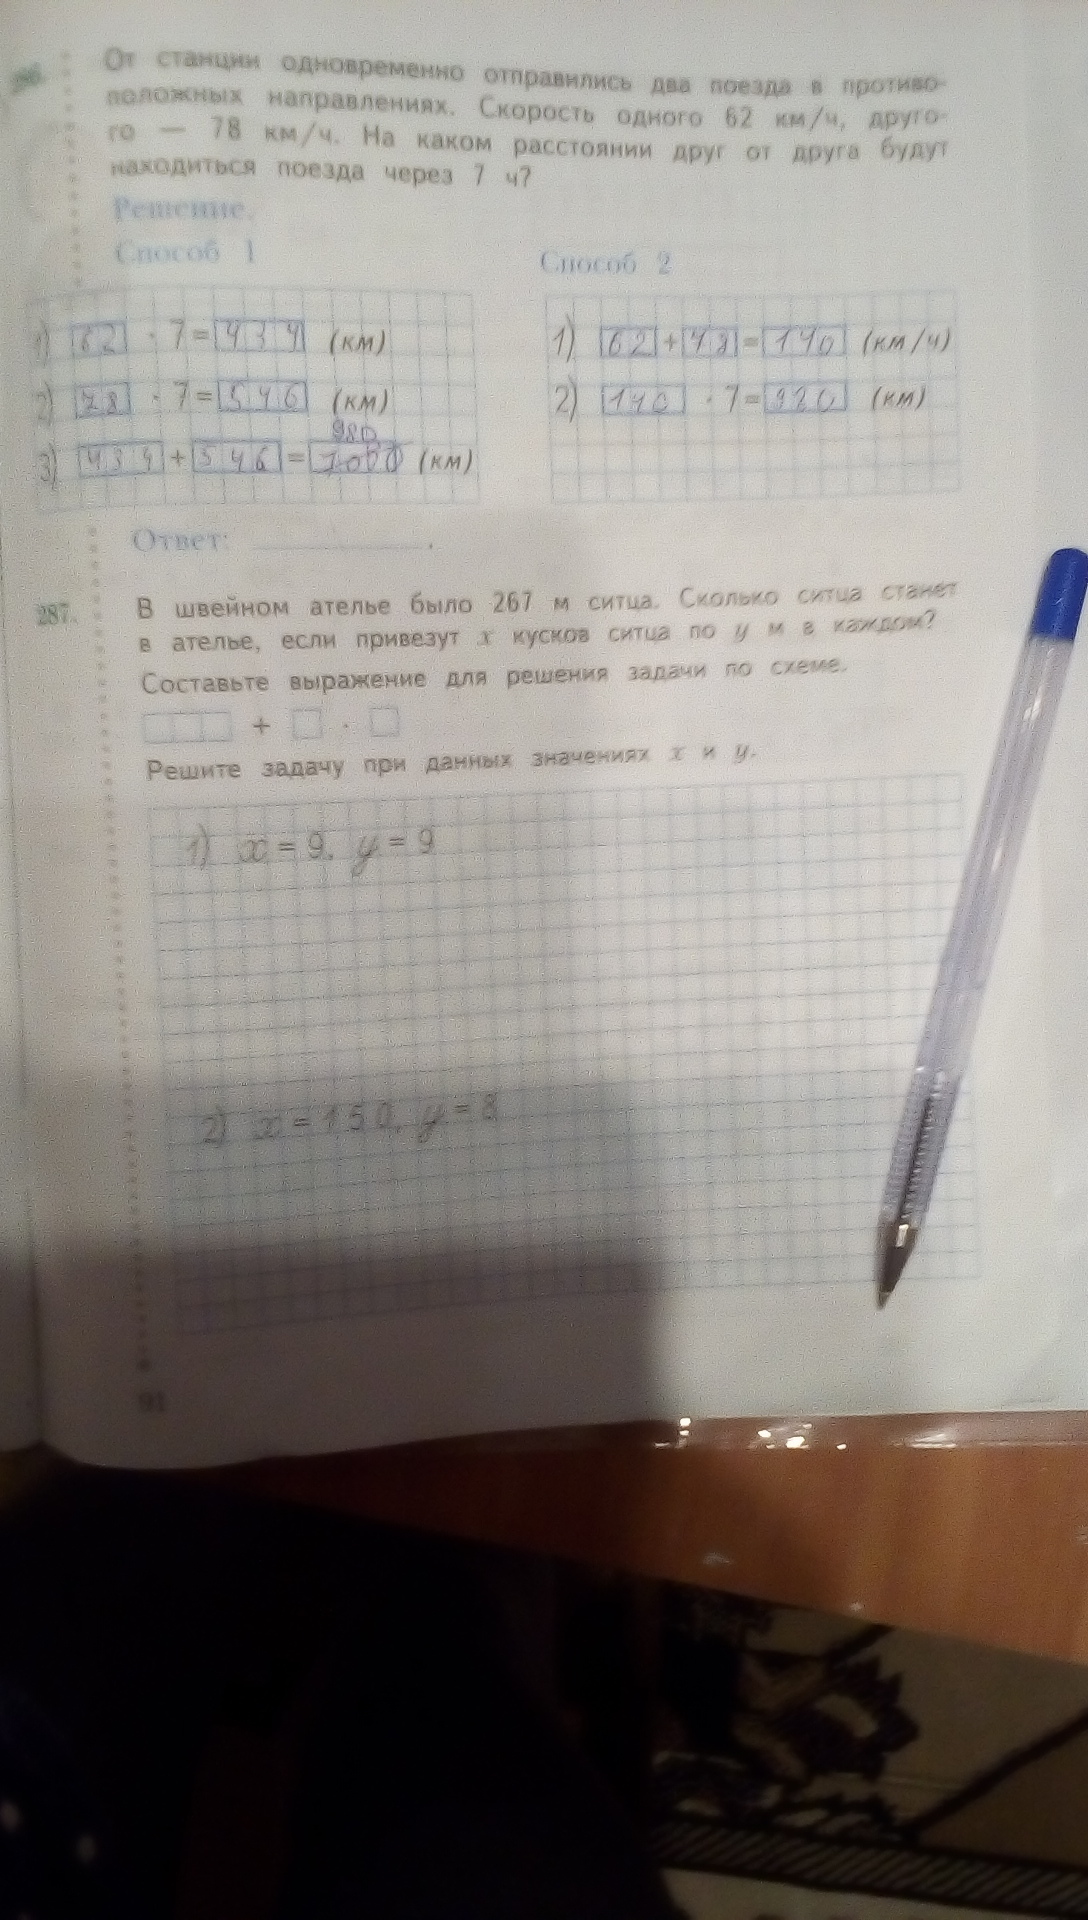 От станции одновременно отправились два поезда в противо-
положных направлениях. Скорость одного 62 км/ч, друго-
го — 78 км/ч. На каком расстоянии друг от друга будут
находиться поезда через 7 ч?
Решение.
Способ 1
1) 62 · 7 = 434 (км)
2) 78 · 7 = 546 (км)
980
3) 434 + 546 = (км)
Способ 2
1) 62 + 78 = 140 (км/ч)
2) 140 · 7 = 980 (км)
Ответ: .
287.
В швейном ателье было 267 м ситца. Сколько ситца станет
в ателье, если привезут x кусков ситца по y м в каждом?
Составьте выражение для решения задачи по схеме.
+ ·
Решите задачу при данных значениях x и y.
1) x = 9, y = 9
2) x = 150, y = 8
91